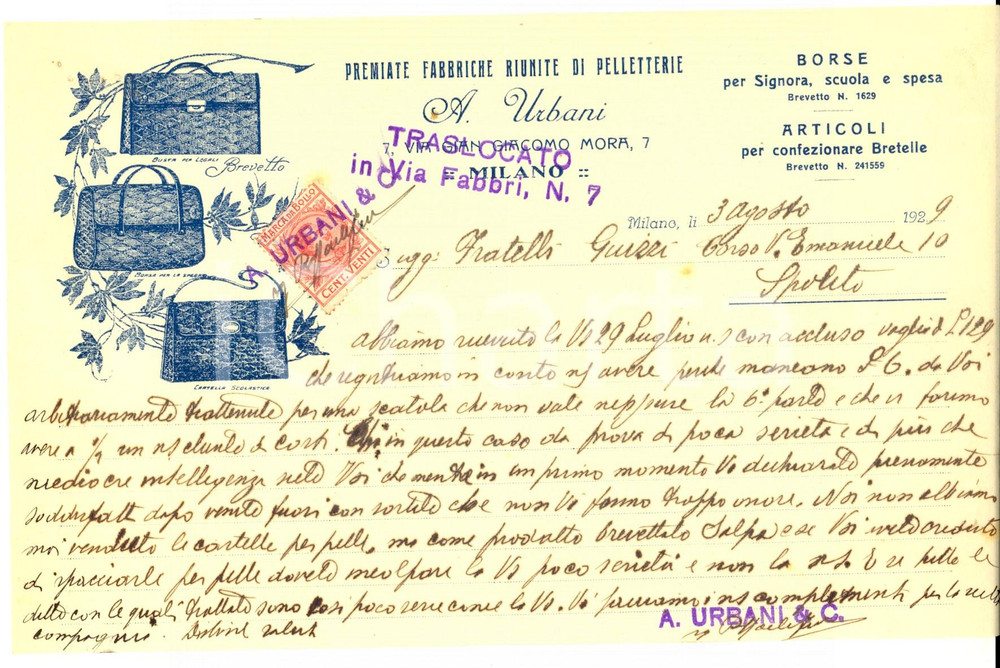 PREMIATE FABBRICHE RIUNITE DI PELLETTERIE
A. Urbani
7, VIA GIAN GIACOMO MORA, 7
:: MILANO ::
TRASLOCATO
in Via Fabbri, N. 7
BORSE
per Signora, scuola e spesa
Brevetto N. 1629
ARTICOLI
per confezionare Bretelle
Brevetto N. 241559
BUSTA PER LEGALI
Brevetto
BORSA PER LA SPESA
CARTELLA SCOLASTICA
MARCA DA BOLLO
CENT. VENTI
A. URBANI & C.
Milano, li 3 agosto 1929
Sugg: Fratelli Guizzi Corso V. Emanuele 10
Spoleto
abbiamo ricevuto la Vs 29 Luglio u.s con accluso vaglia di L 129
che registriamo in conto ns avere perché mancano L 6. da Voi
arbitrariamente trattenute per una scatola che non vale neppure la 6ª parte e che vi faremo
avere a ½ un ns cliente di costì. Chi in questo caso da prova di poca serietà e di più che
mediocre intelligenza siete Voi che mentre in un primo momento Vi dichiarate pienamente
soddisfatti dopo venite fuori con sortite che non Vi fanno troppo onore. Noi non abbiamo
mai venduto le cartelle per pelle, ma come prodotto brevettato Salpa e se Voi avete creduto
di spacciarle per pelle dovete incolpare la Vs poca serietà e non la ns. E se tutte le
ditte con le quali trattate sono così poco serie come la Vs. Vi facciamo i ns complimenti per la scelta
compagnia. Distinti saluti
A. URBANI & C.